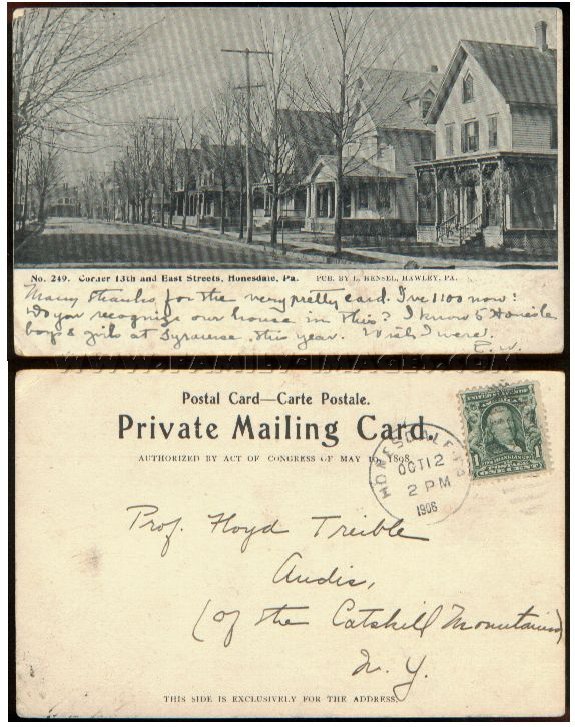 No. 249. Corner 13th and East Streets, Honesdale, Pa. PUB. BY L. HENSEL, HAWLEY, PA.
Many thanks for the very pretty card. I've 1100 now!
Do you recognize our house in this? I know 5 Honesdale
boys & girls at Syracuse this year. Wish I were.
E. W.
WWW.FAMILY-IMAGES.COM
Postal Card—Carte Postale.
Private Mailing Card.
AUTHORIZED BY ACT OF CONGRESS OF MAY 19, 1898.
HONESDALE, PA.
OCT 12
2 PM
1906
1
ONE CENT
Prof. Floyd Treible
Andes,
(of the Catskill Mountains)
N. Y.
THIS SIDE IS EXCLUSIVELY FOR THE ADDRESS.